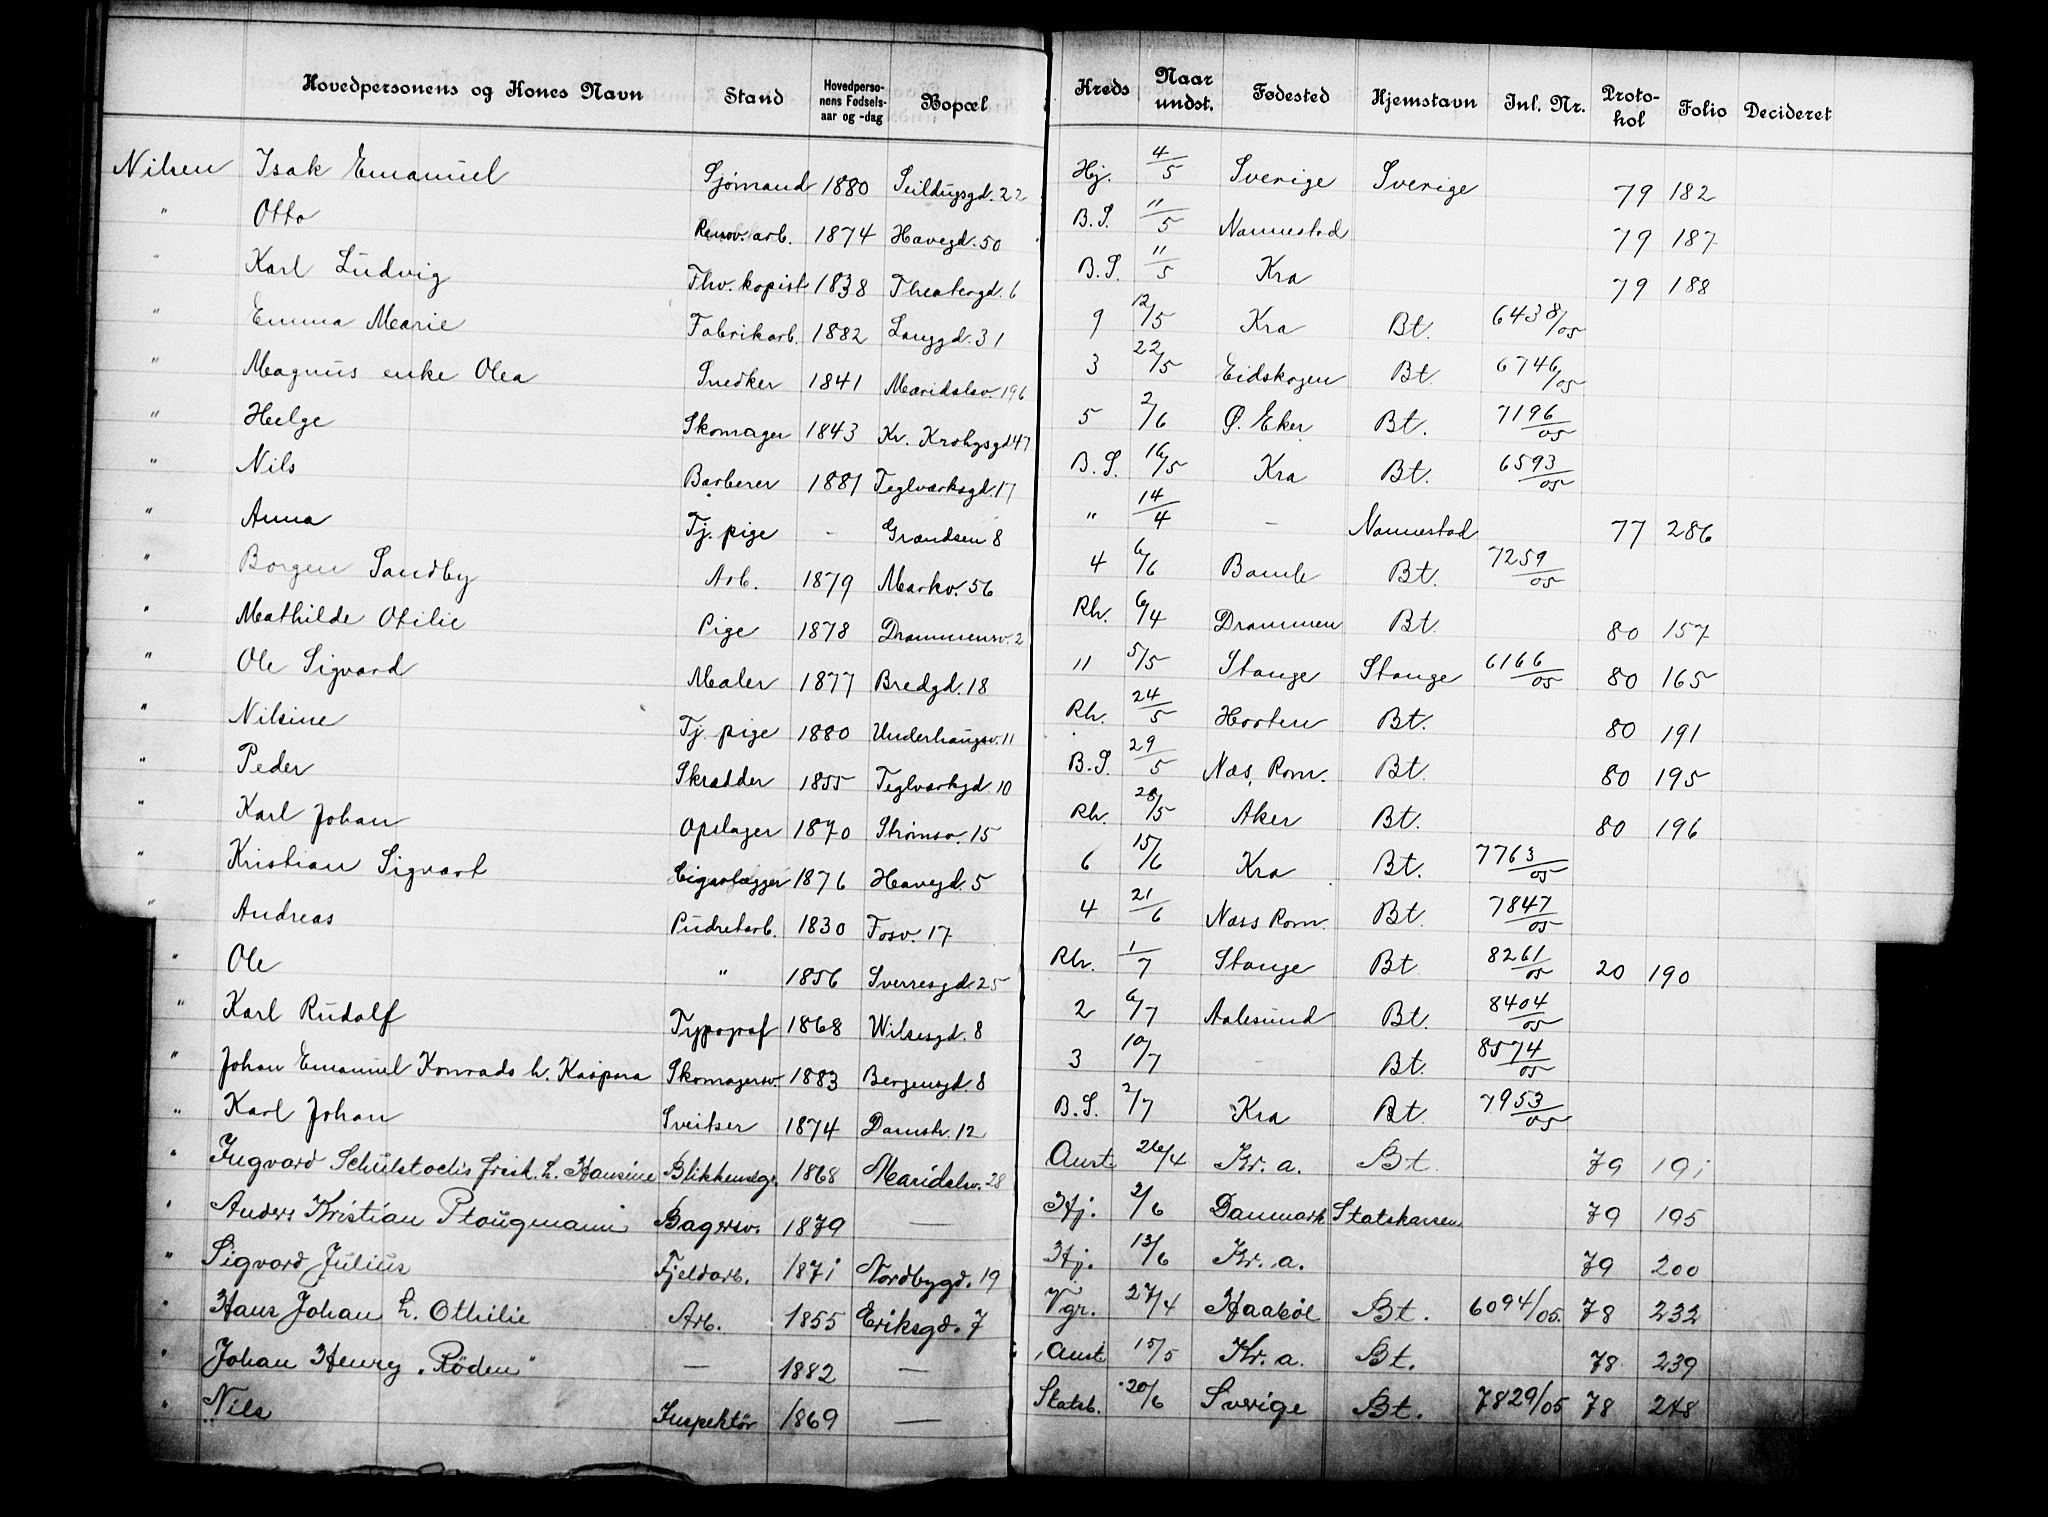 Hovedpersonens og Kones Navn Stand Hovedpersonens Fødselsaar og -dag Bopæl Kreds Naar undst. Fødested Hjemstavn Inl. Nr. Protokol Folio Decideret
Nilsen Isak Emanuel Sjømand 1880 Seildugsgd. 22 Hj. 4/5 Sverige Sverige 79 182
" Otto Renov. arb. 1874 Havegd. 50 B. S. 11/5 Nannestad 79 187
" Karl Ludvig Thv. kopist 1838 Theatergd. 6 B. S. 11/5 Kra 79 188
" Emma Marie Fabrikarb. 1882 Langgd. 31 9 12/5 Kra Bt. 6438/05
" Magnus enke Olea Snedker 1841 Maridalsv. 196 3 22/5 Eidskogen Bt. 6746/05
" Helge Skomager 1843 Kr. Krohgsgd 47 5 2/6 Ø. Eker Bt. 7196/05
" Nils Barberer 1881 Teglværksgd. 17 B. S. 16/5 Kra Bt. 6593/05
" Anna Tj. pige - Grændsen 8 " 14/4 - Nannestad 77 286
" Borgen Sandby Arb. 1879 Markv. 56 4 6/6 Bamle Bt. 7259/05
" Mathilde Otilie Pige 1878 Drammensv. 2 Rh. 6/4 Drammen Bt. 80 157
" Ole Sigvard Maler 1877 Bredgd. 18 11 5/5 Stange Stange 6166/05 80 165
" Nilsine Tj. pige 1880 Underhaugsv. 11 Rh. 24/5 Horten Bt. 80 191
" Peder Skrædder 1855 Teglværkgd. 10 B. S. 29/5 Næs, Rom. Bt. 80 195
" Karl Johan Opslager 1870 Strømsv. 15 Rh. 28/5 Aker Bt. 80 196
" Kristian Sigvart Cigarlægger 1876 Havegd. 5 6 15/6 Kra Bt. 7763/05
" Andreas Pudretarb. 1830 Fosv. 17 4 21/6 Næss Rom. Bt. 7847/05
" Ole " 1856 Sverresgd. 25 Rh. 1/7 Stange Bt. 8261/05 20 190
" Karl Rudolf Typograf 1868 Wilsesgd. 8 2 6/7 Aalesund Bt. 8404/05
" Johan Emanuel Konrads h. Kaspara Skomagersv. 1883 Bergensgd. 8 3 10/7 - Bt. 8574/05
" Karl Johan Sveitser 1874 Damstr. 12 B. S. 2/7 Kra Bt. 7953/05
" Ingvard h. Hansine Blikkenslgr. 1868 Maridalsv. 28 Aust 26/4 Kr. a. Bt. 79 191
" Anders Kristian Plougmann Bagersv. 1879 — Hj. 2/6 Danmark Statskassen 79 195
" Sigvard Julius Fjeldarb. 1871 Nordbygd. 19 Hj. 13/6 Kr. a. 79 200
" Hans Johan h. Othilie Arb. 1855 Eriksgd. 7 Vgr. 27/4 Haabøl Bt. 6094/05. 78 232
" Johan Henry "Röden" — 1882 — Aust 15/5 Kr. a. Bt. 78 239
" Nils Inspektör 1869 — Statsb. 20/6 Sverige Bt. 7829/05 78 248